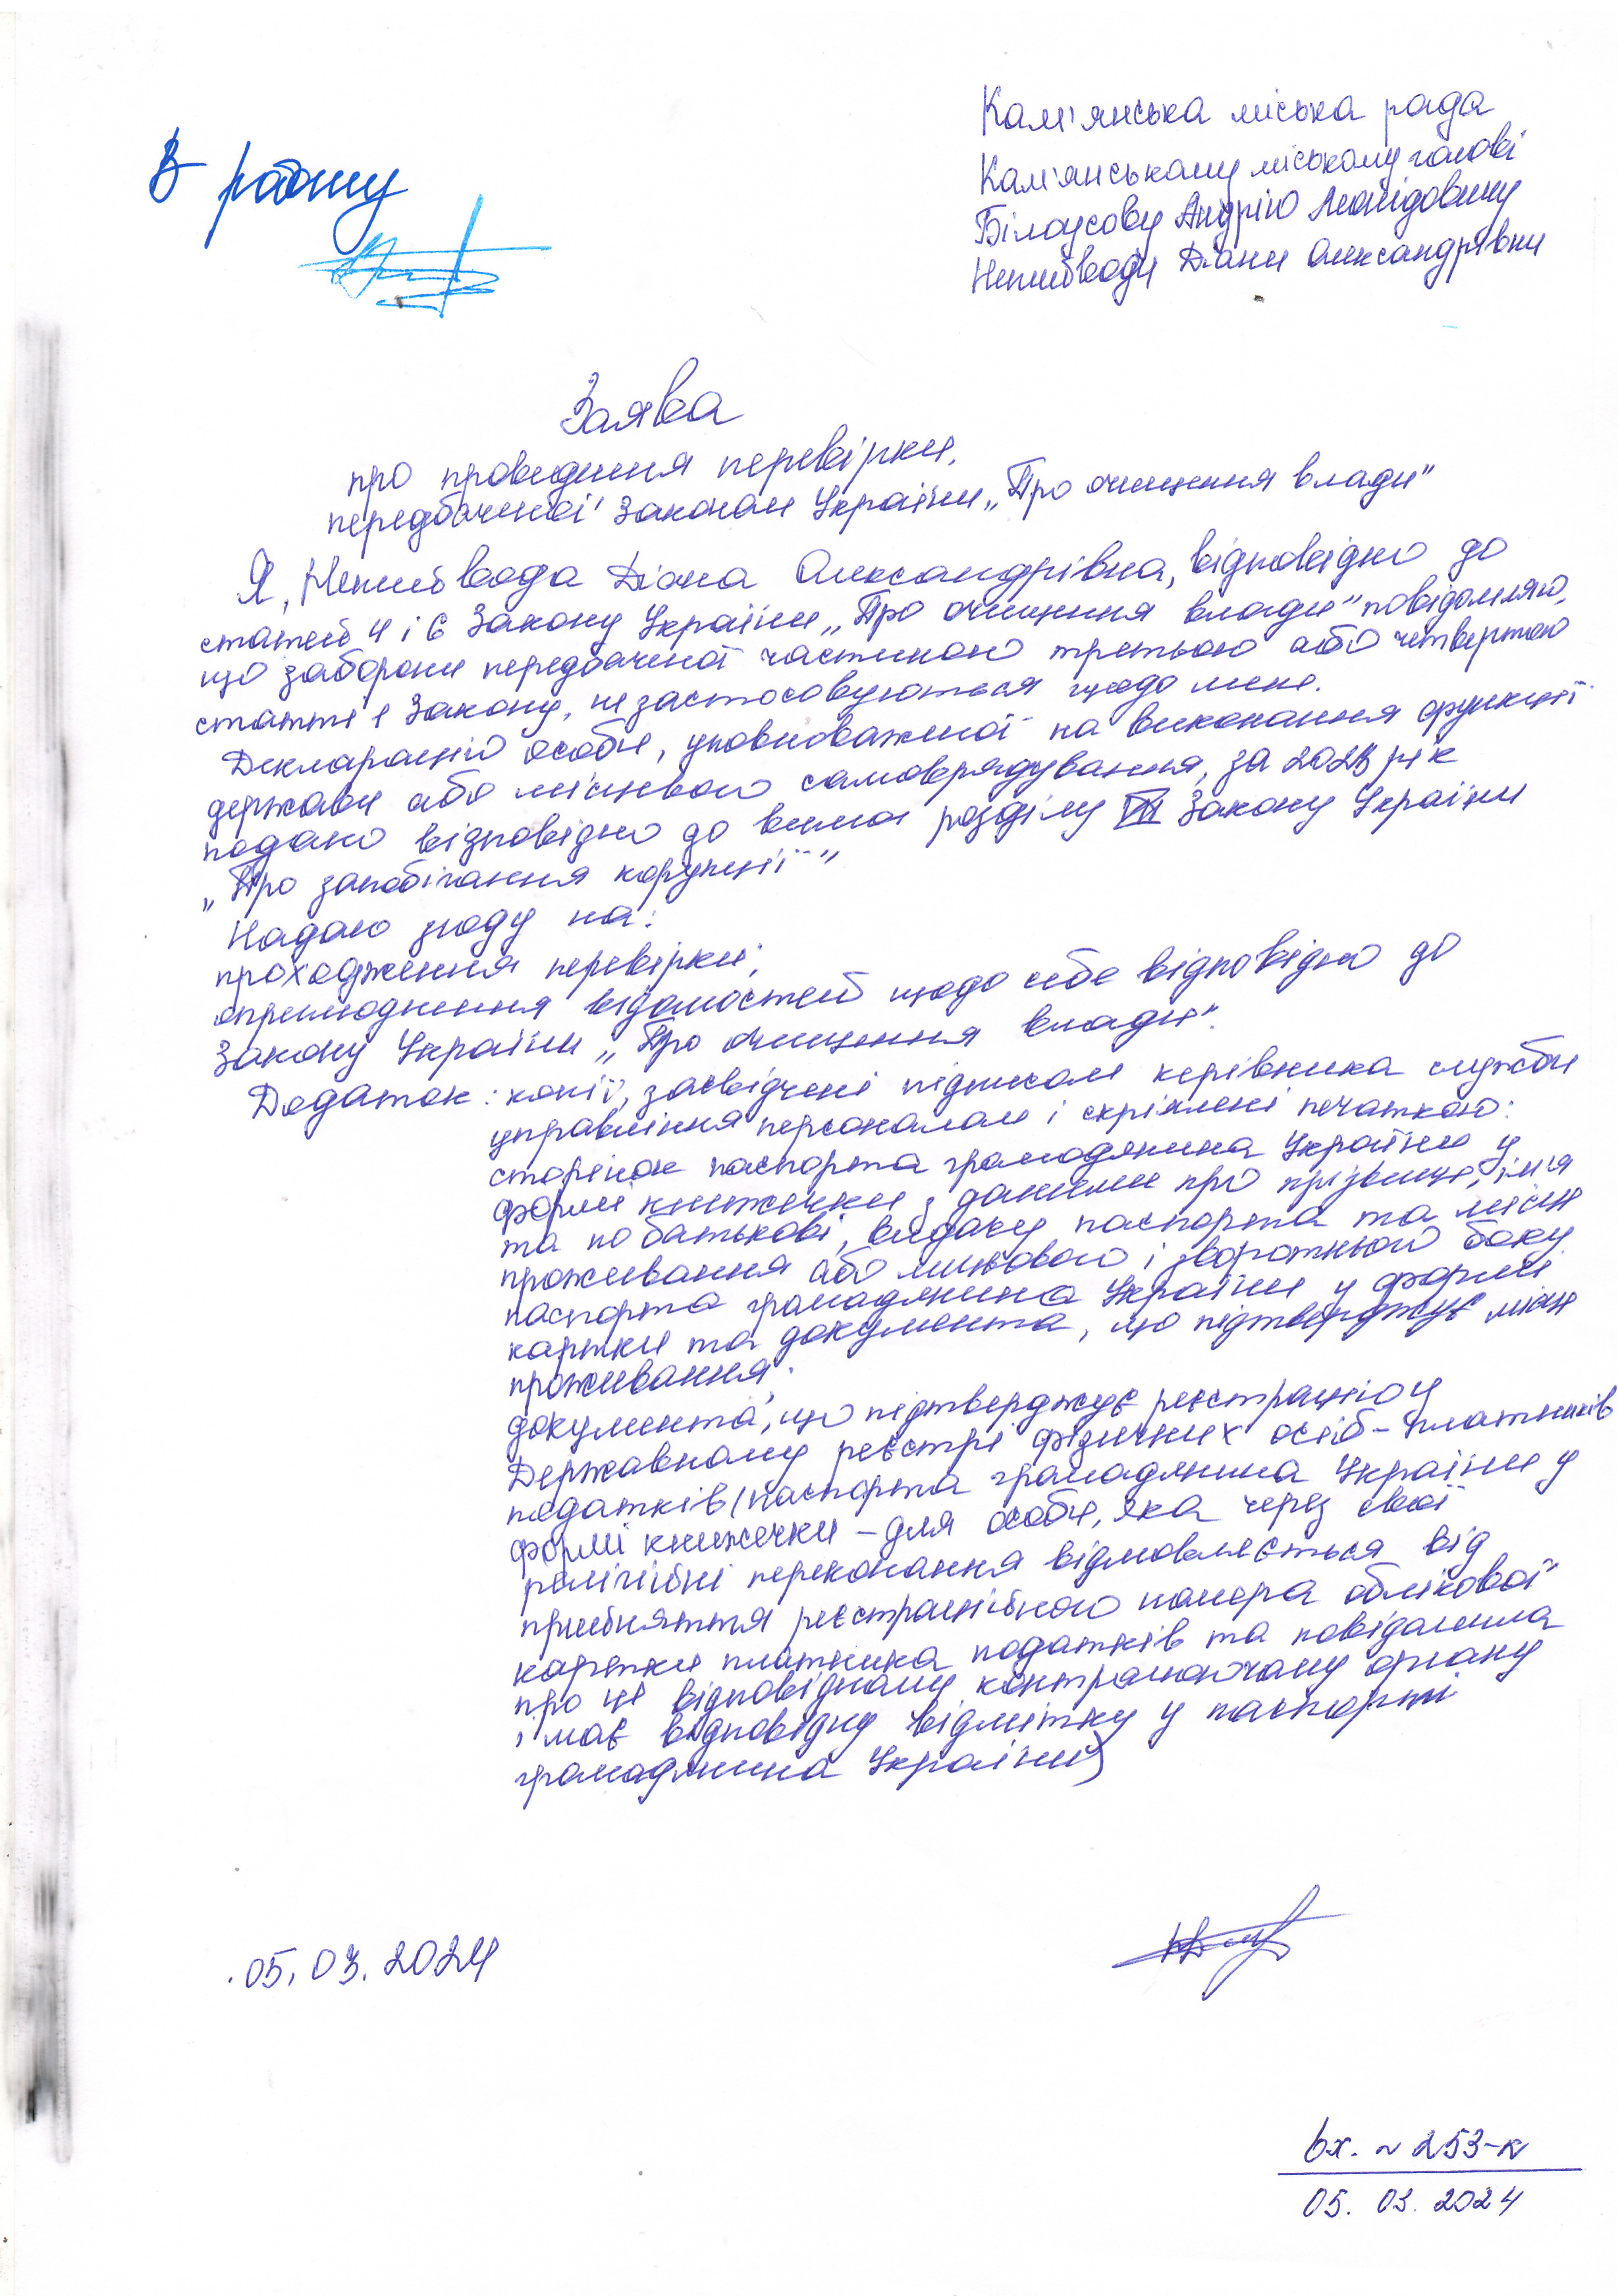 В роботу
Кам'янська міська рада
Кам'янському міському голові
Білоусову Андрію Леонідовичу
Непийводи Діани Олександрівни
Заява
про проведення перевірки,
передбаченої Законом України „Про очищення влади"
Я, Непийвода Діана Олександрівна, відповідно до
статей 4 і 6 Закону України „Про очищення влади" повідомляю,
що заборони передбачені частиною третьою або четвертою
статті 1 Закону, не застосовуються щодо мене.
Декларацію особи, уповноваженої на виконання функцій
держави або місцевого самоврядування, за 2023 рік
подано відповідно до вимог розділу VII Закону України
„Про запобігання корупції"
Надаю згоду на:
проходження перевірки;
оприлюднення відомостей щодо себе відповідно до
Закону України „Про очищення влади".
Додаток: копії, засвідчені підписом керівника служби
управління персоналом і скріплені печаткою:
сторінок паспорта громадянина України у
формі книжечки з даними про прізвище, ім'я
та по батькові, видачу паспорта та місце
проживання або лицьового і зворотнього боку
паспорта громадянина України у формі
картки та документа, що підтверджує місце
проживання;
документа, що підтверджує реєстрацію у
Державному реєстрі фізичних осіб-платників
податків (паспорта громадянина України у
формі книжечки - для особи, яка через свої
релігійні переконання відмовляється від
прийняття реєстраційного номера облікової
картки платника податків та повідомила
про це відповідному контролюючому органу
і має відповідну відмітку у паспорті
громадянина України)
05.03.2024
вх. ~ 253-к
05.03.2024